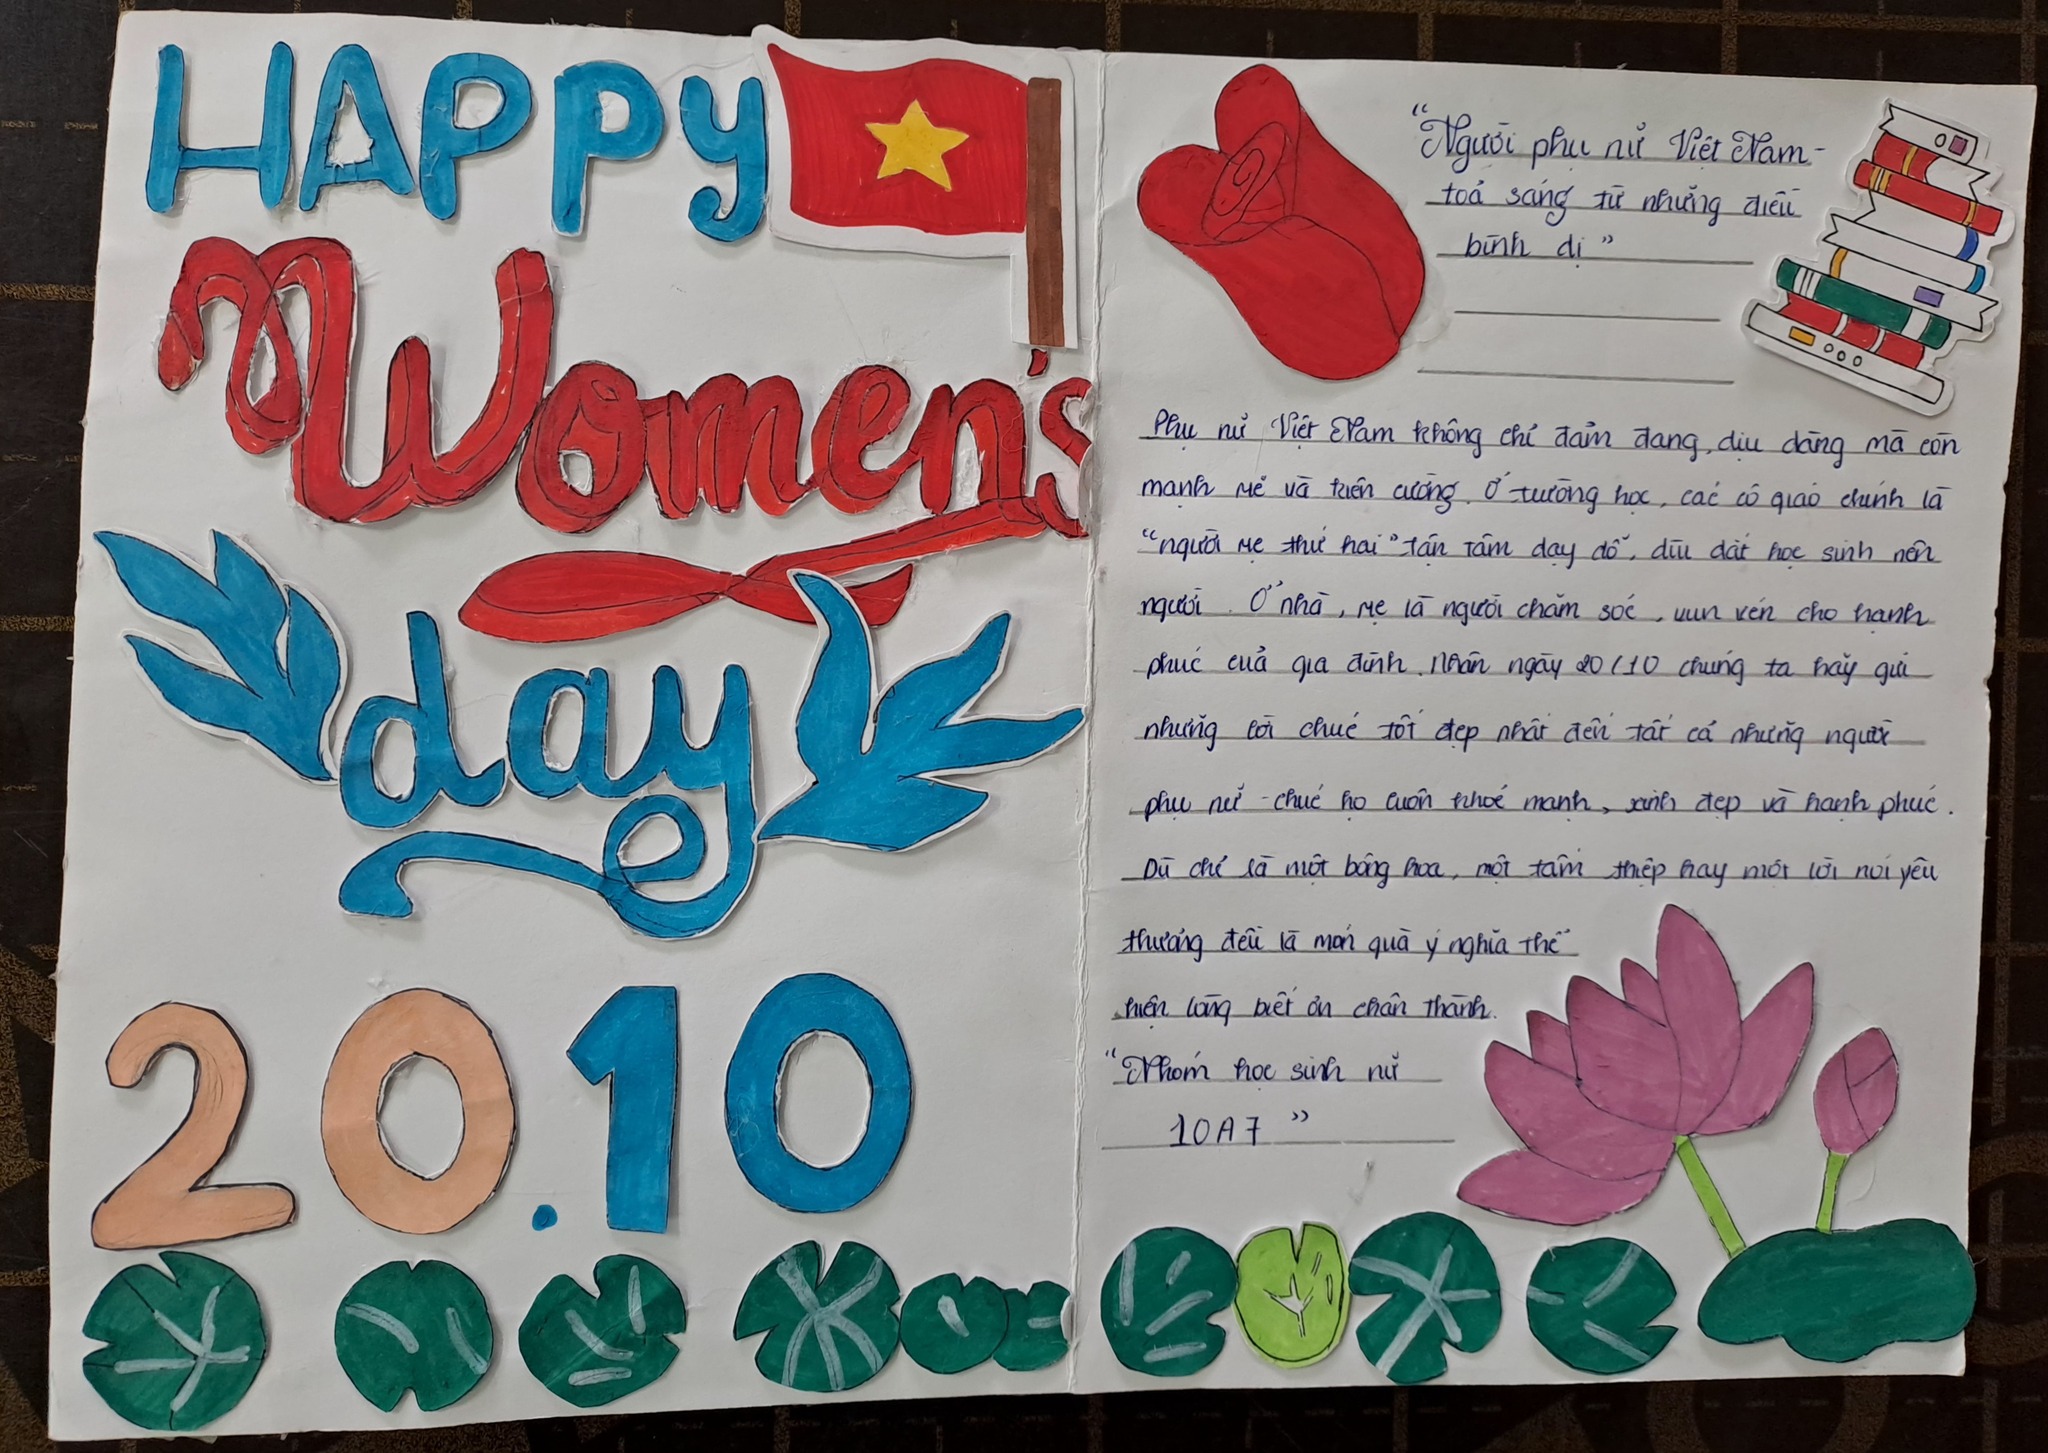 HAPPY
Women's
day
20.10
"Người phụ nữ Việt Nam -
toả sáng từ những điều
bình dị"
Phụ nữ Việt Nam không chỉ đảm đang, dịu dàng mà còn
mạnh mẽ và kiên cường. Ở trường học, các cô giáo chính là
"người mẹ thứ hai" tận tâm dạy dỗ, dìu dắt học sinh nên
người. Ở nhà, mẹ là người chăm sóc, vun vén cho hạnh
phúc của gia đình. Nhân ngày 20/10 chúng ta hãy gửi
những lời chúc tốt đẹp nhất đến tất cả những người
phụ nữ - chúc họ luôn khoẻ mạnh, xinh đẹp và hạnh phúc.
Dù chỉ là một bông hoa, một tấm thiệp hay một lời nói yêu
thương đều là món quà ý nghĩa thể
hiện lòng biết ơn chân thành.
"Nhóm học sinh nữ
10A7"